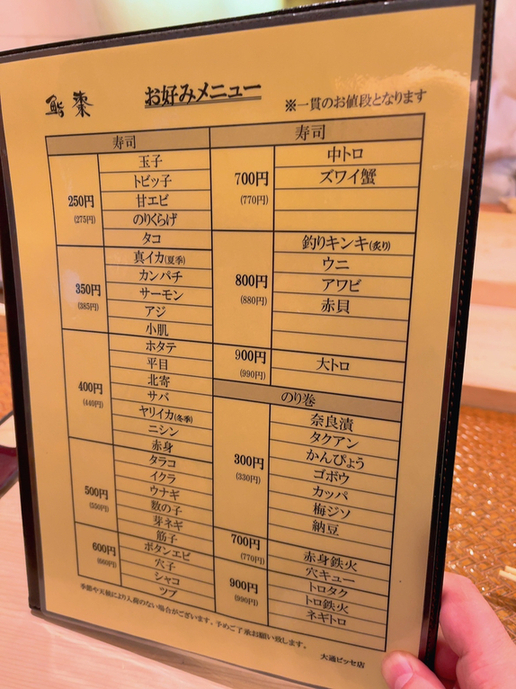 鮨 棗
お好みメニュー
※一貫のお値段となります
寿司
250円
(275円)
玉子
トビッ子
甘エビ
のりくらげ
タコ
350円
(385円)
真イカ(夏季)
カンパチ
サーモン
アジ
小肌
400円
(440円)
ホタテ
平目
北寄
サバ
ヤリイカ(冬季)
ニシン
500円
(550円)
赤身
タラコ
イクラ
ウナギ
数の子
芽ネギ
600円
(660円)
筋子
ボタンエビ
穴子
シャコ
ツブ
寿司
700円
(770円)
中トロ
ズワイ蟹
800円
(880円)
釣りキンキ(炙り)
ウニ
アワビ
赤貝
900円
(990円)
大トロ
のり巻
300円
(330円)
奈良漬
タクアン
かんぴょう
ゴボウ
カッパ
梅ジソ
納豆
700円
(770円)
赤身鉄火
穴キュー
900円
(990円)
トロタク
トロ鉄火
ネギトロ
季節や天候により入荷のない場合がございます。予めご了承お願い致します。
大通ビッセ店